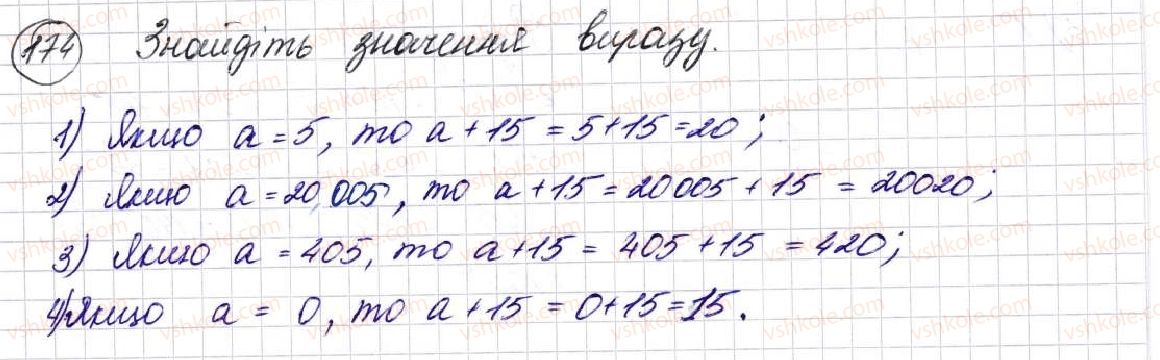 174 Знайдіть значення виразу.
1) Якщо a = 5, то a + 15 = 5 + 15 = 20;
2) Якщо a = 20 005, то a + 15 = 20005 + 15 = 20020;
3) Якщо a = 405, то a + 15 = 405 + 15 = 420;
4) Якщо a = 0, то a + 15 = 0 + 15 = 15.